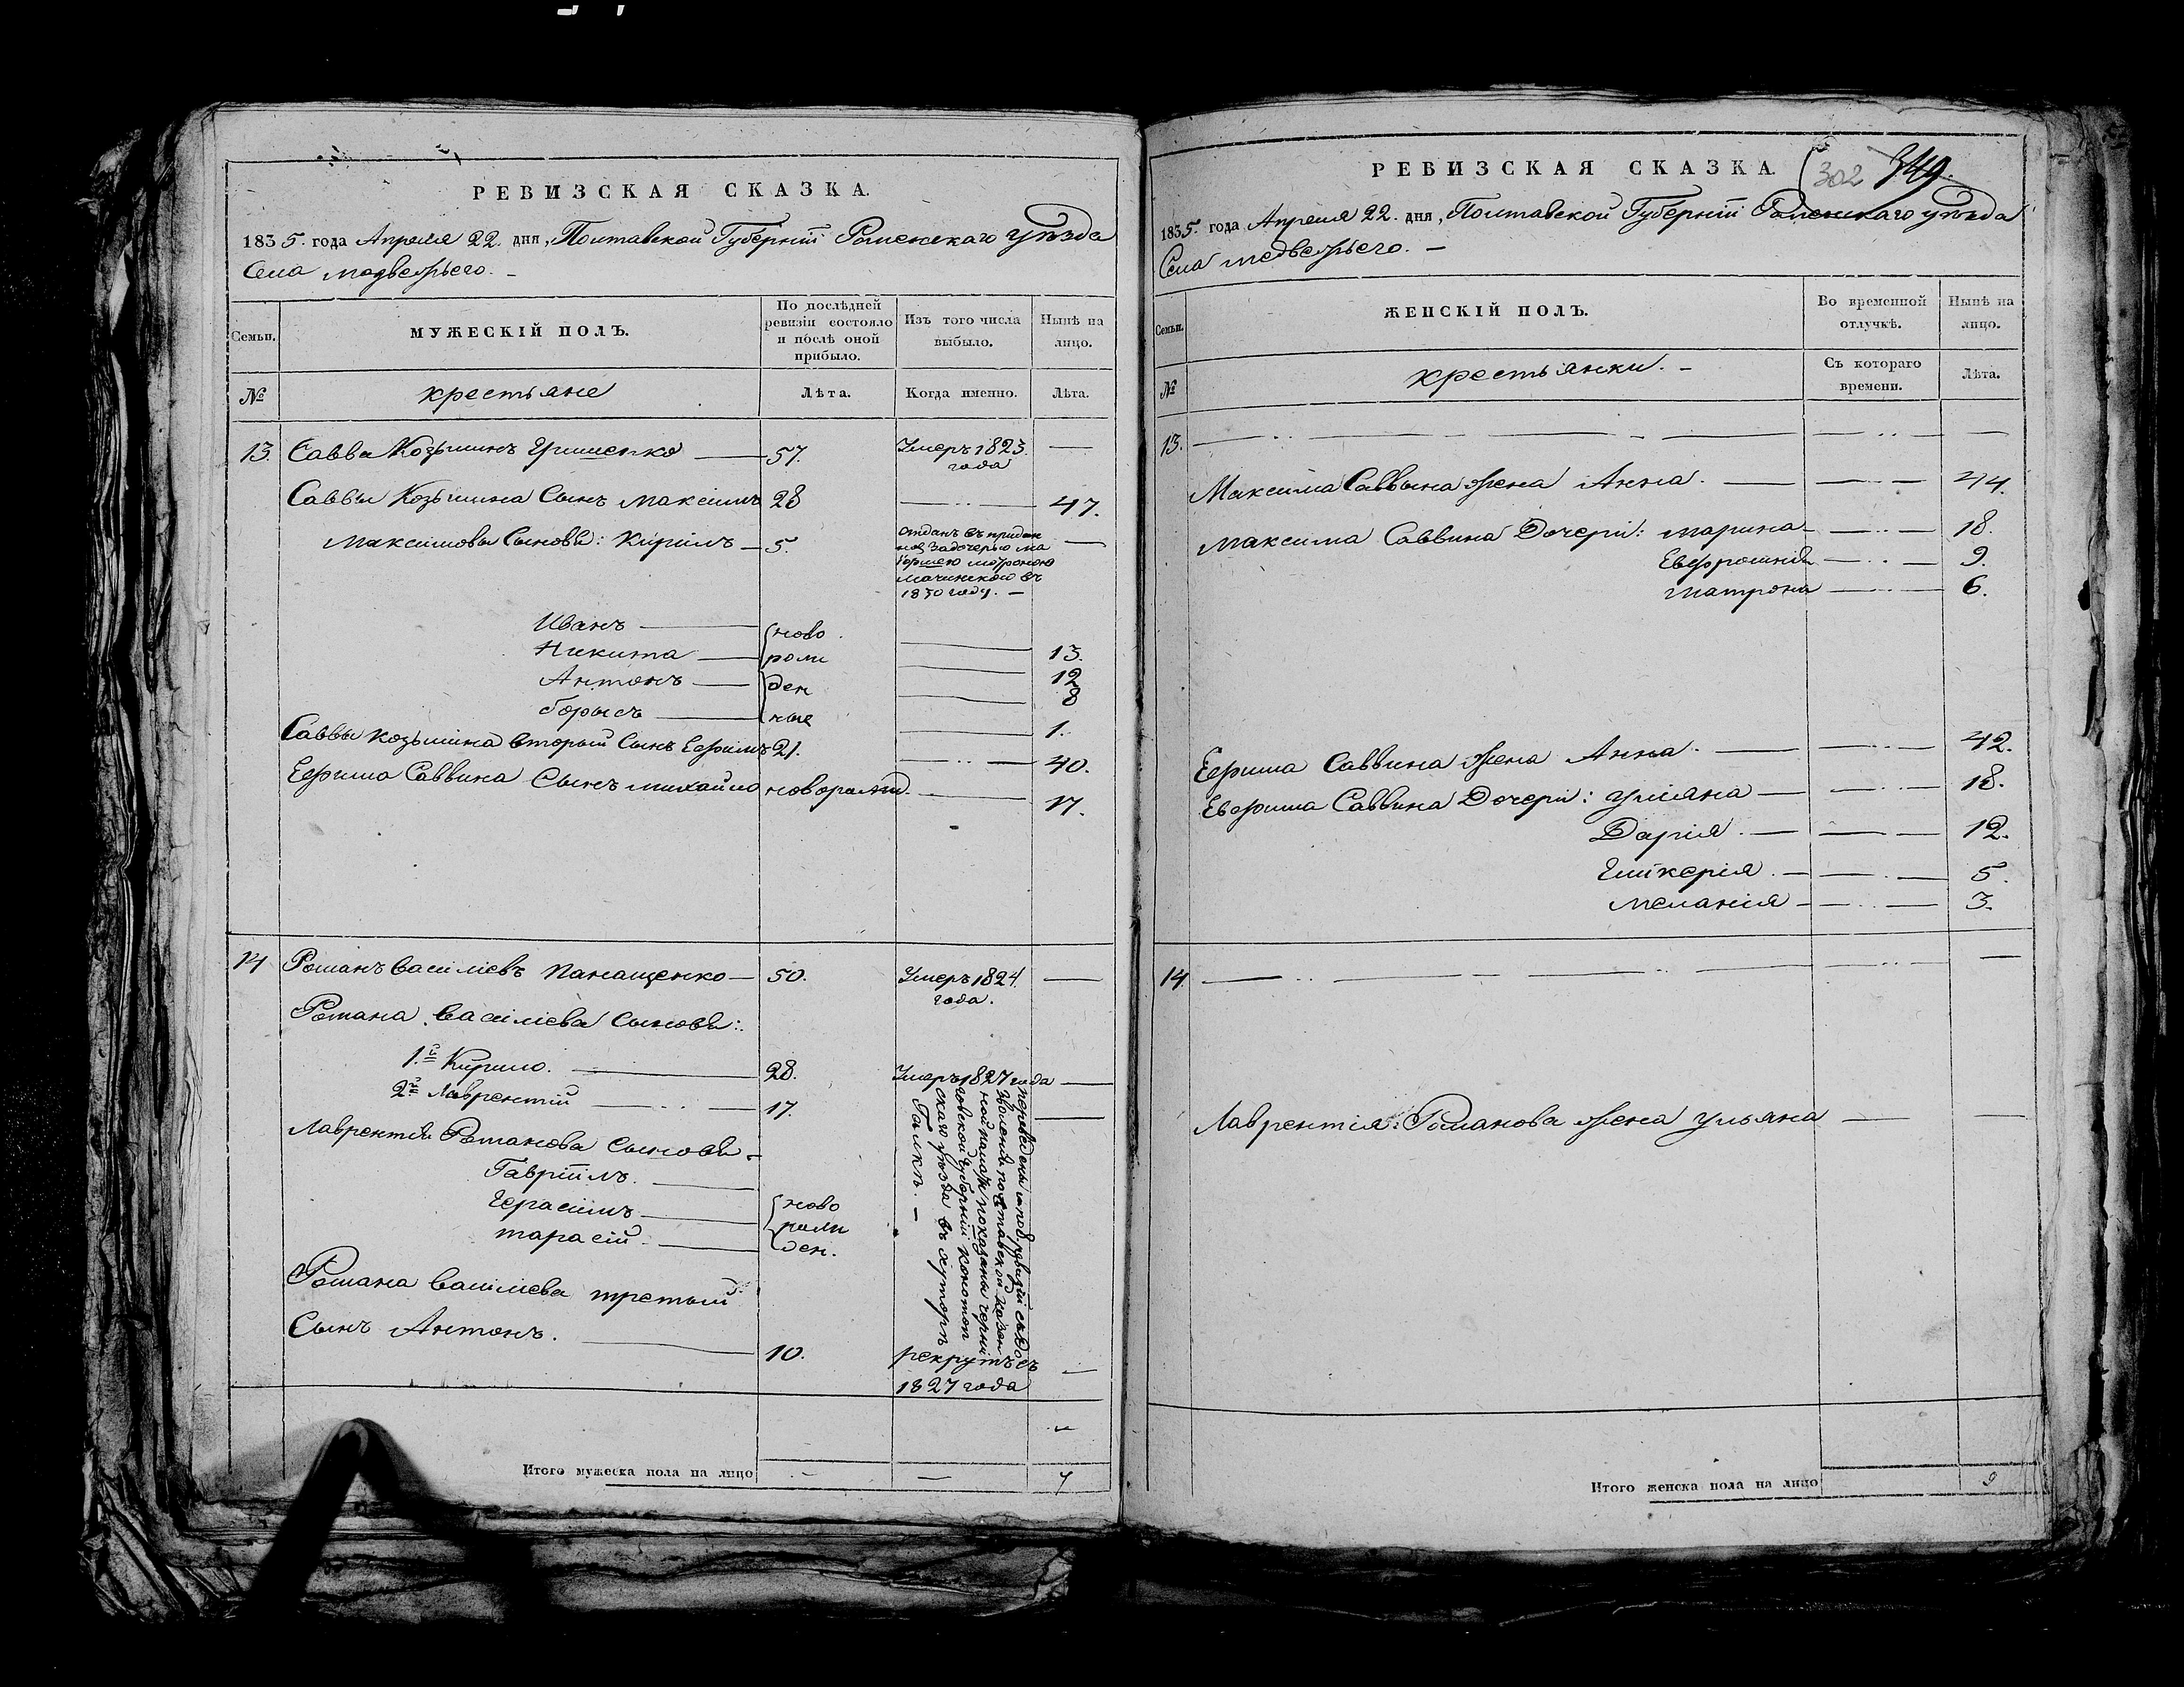 РЕВИЗСКАЯ СКАЗКА.
1835. года Апреля 22. дня, Полтавской Губерніи Роменскаго уѣзда
Села медвежьего. –
Семьи.
МУЖЕСКІЙ ПОЛЪ.
По послѣдней ревизіи состояло и послѣ оной прибыло.
Изъ того числа выбыло.
Нынѣ на лицо.
№
крестьяне
Лѣта.
Когда именно.
Лѣта.
13. Савва Козьминъ Гришенко — 57. Умеръ 1823. —
года
Саввы Козьмина Сынъ максимъ 28 — 47.
Максимовы Сыновья: Кирилъ — 5. отданъ въ придан —
ное за дочерью ма
1830 году. –
Иванъ — ново — 13.
Никита — рож — 12
Антонъ — ден — 8
борысъ — ные — 1.
Саввы козьмина вторый Сынъ Ефимъ 21. — 40.
Ефима Саввина Сынъ михайло новорожд. — 17.
14 Романъ василіевъ панащенко — 50. Умеръ 1824. —
года.
Романа василіева сыновья:
1.й Кирило. — 28. Умеръ 1827 года —
2й Лаврентій — 17. —
Лаврентія Романова сыновья
Гавріилъ. —
Герасимъ — ново
тарасій — рож
ден.
переведены
полтавской казен
ной палаты показаны черни
говской губерніи конотоп
скаго уѣзда въ хуторъ
Галкъ. –
Романа василіева третый
Сынъ Антонъ. — 10. рекрутъ съ —
1827 года
Итого мужеска пола на лицо — 7
РЕВИЗСКАЯ СКАЗКА.
302 349.
1835. года Апреля 22. дня, Полтавской Губерніи Роменскаго уѣзда
Села медвежьего. –
Семьи.
ЖЕНСКІЙ ПОЛЪ.
Во временной отлучкѣ.
Нынѣ на лицо.
№
крестьянки. –
Съ котораго времени.
Лѣта.
13. — — —
Максима Саввина жена Анна. — 44.
максима Саввина Дочери: марина — 18.
Евфросинія — 9.
матрона — 6.
Ефима Саввина жена Анна. — 42.
Евфима Саввина Дочери: уліяна — 18.
Дарія. — 12.
Гликерія. — 5.
меланія — 3.
14. — — —
Лаврентія Романова жена ульяна — —
Итого женска пола на лицо 9